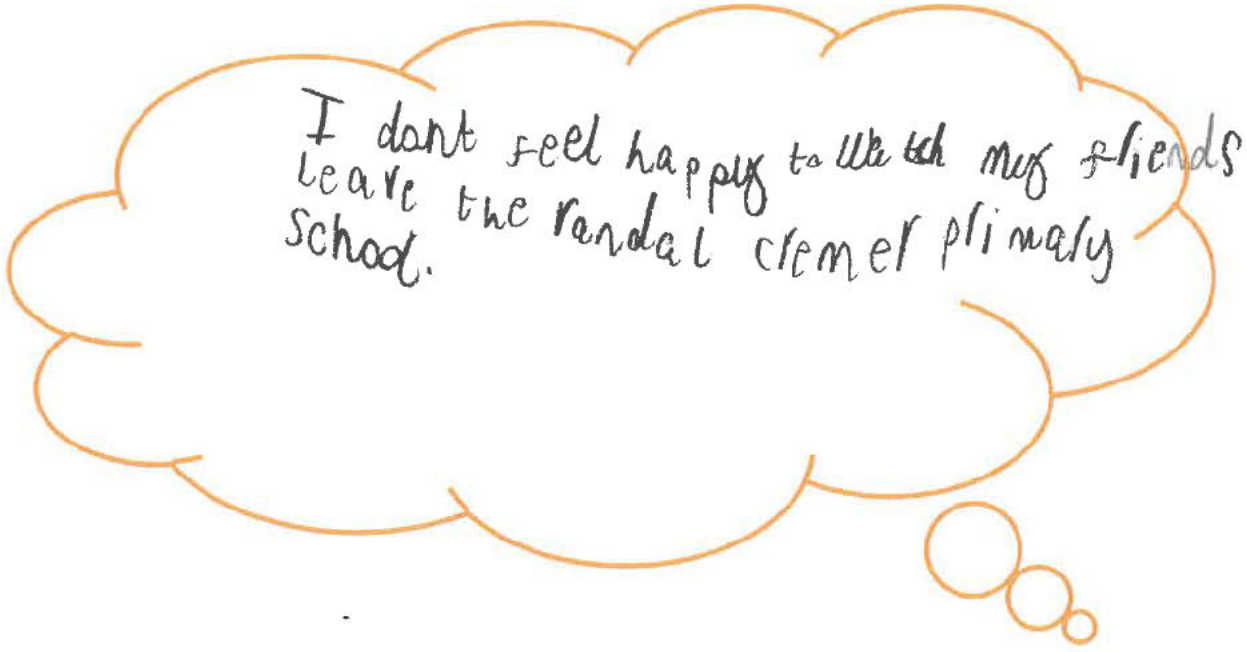 I dont feel happy to watch my friends
leave the randal cremer primary
school.